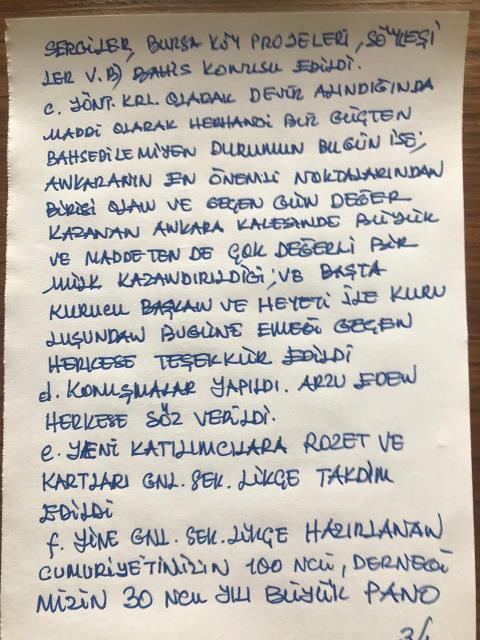 SERGİLER, BURSA KÖY PROJELERİ, SÖYLEŞİ
LER V.B) BAHİS KONUSU EDİLDİ.
c. YÖNT. KRL. OLARAK DEVİR ALINDIĞINDA
MADDİ OLARAK HERHANDİ BİR GÜÇTEN
BAHSEDİLEMİYEN DURUMUN BUGÜN İSE;
ANKARANIN EN ÖNEMLİ NOKTALARINDAN
BİRİSİ OLAN VE GEÇEN GÜN DEĞER
KAZANAN ANKARA KALESİNDE BÜYÜK
VE MADDETEN DE ÇOK DEĞERLİ BİR
MÜLK KAZANDIRILDIĞI; VE BAŞTA
KURUCU BAŞKAN VE HEYETİ İLE KURU
LUŞUNDAN BUGÜNE EMEĞİ GEÇEN
HERKESE TEŞEKKÜR EDİLDİ
d. KONUŞMALAR YAPILDI. ARZU EDEN
HERKESE SÖZ VERİLDİ.
e. YENİ KATILIMCILARA ROZET VE
KARTLARI GNL. ŞEK. LİKÇE TAKDİM
EDİLDİ
f. YİNE GNL. SEK. LİKÇE HAZIRLANAN
CUMURİYETİMİZİN 100 NCÜ, DERNEĞİ
MİZİN 30 NCU YILI BÜYÜK PANO
3/